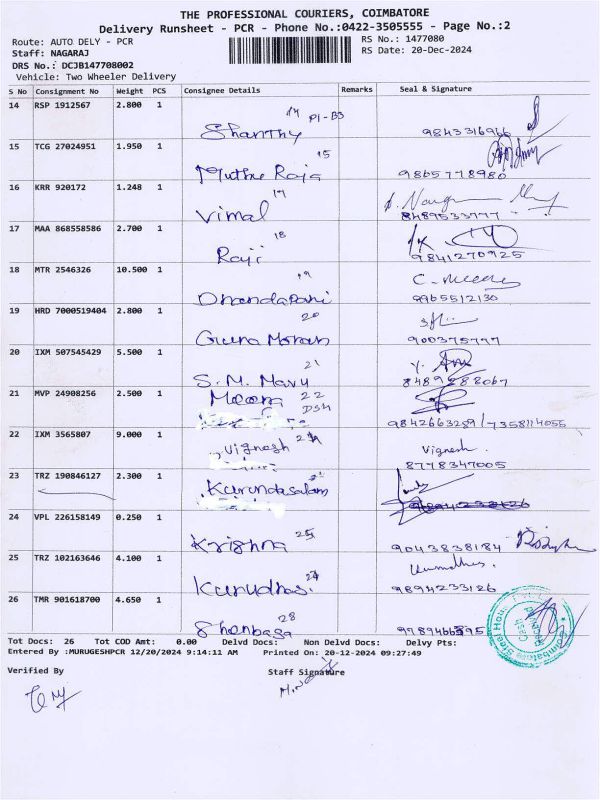 THE PROFESSIONAL COURIERS, COIMBATORE
Delivery Runsheet - PCR - Phone No.:0422-3505555 - Page No.:2
Route: AUTO DELY - PCR RS No.: 1477080
Staff: NAGARAJ RS Date: 20-Dec-2024
DRS No.: DCJB147708002
Vehicle: Two Wheeler Delivery
S No Consignment No Weight PCS Consignee Details Remarks Seal & Signature
14 RSP 1912567 2.800 1 14 P1-B3
Shanthy 9843316966
15 TCG 27024951 1.950 1 15
Muthu Raja 9865778980
16 KRR 920172 1.248 1 17
Vimal 8489533777
17 MAA 868558586 2.700 1 18
Raji 9841270925
18 MTR 2546326 10.500 1 19
Dhandapani 9965512130
19 HRD 7000519404 2.800 1 20
Guna Mohan 900375777
20 IXM 507545429 5.500 1 21
S. M. Mavu
21 MVP 24908256 2.500 1 22
DSH
9842663259/7358114055
22 IXM 3565807 9.000 1
Vignesh Vignesh
8778347005
23 TRZ 190846127 2.300 1
24 VPL 226158149 0.250 1 25
Krishna 9043838184
25 TRZ 102163646 4.100 1
9894233126
26 TMR 901618700 4.650 1 28
Shenbaga
Coimbatore
Cash
Received
Tot Docs: 26 Tot COD Amt: 0.00 Delvd Docs: Non Delvd Docs: Delvy Pts:
Entered By :MURUGESHPCR 12/20/2024 9:14:11 AM Printed On: 20-12-2024 09:27:49
Verified By Staff Signature